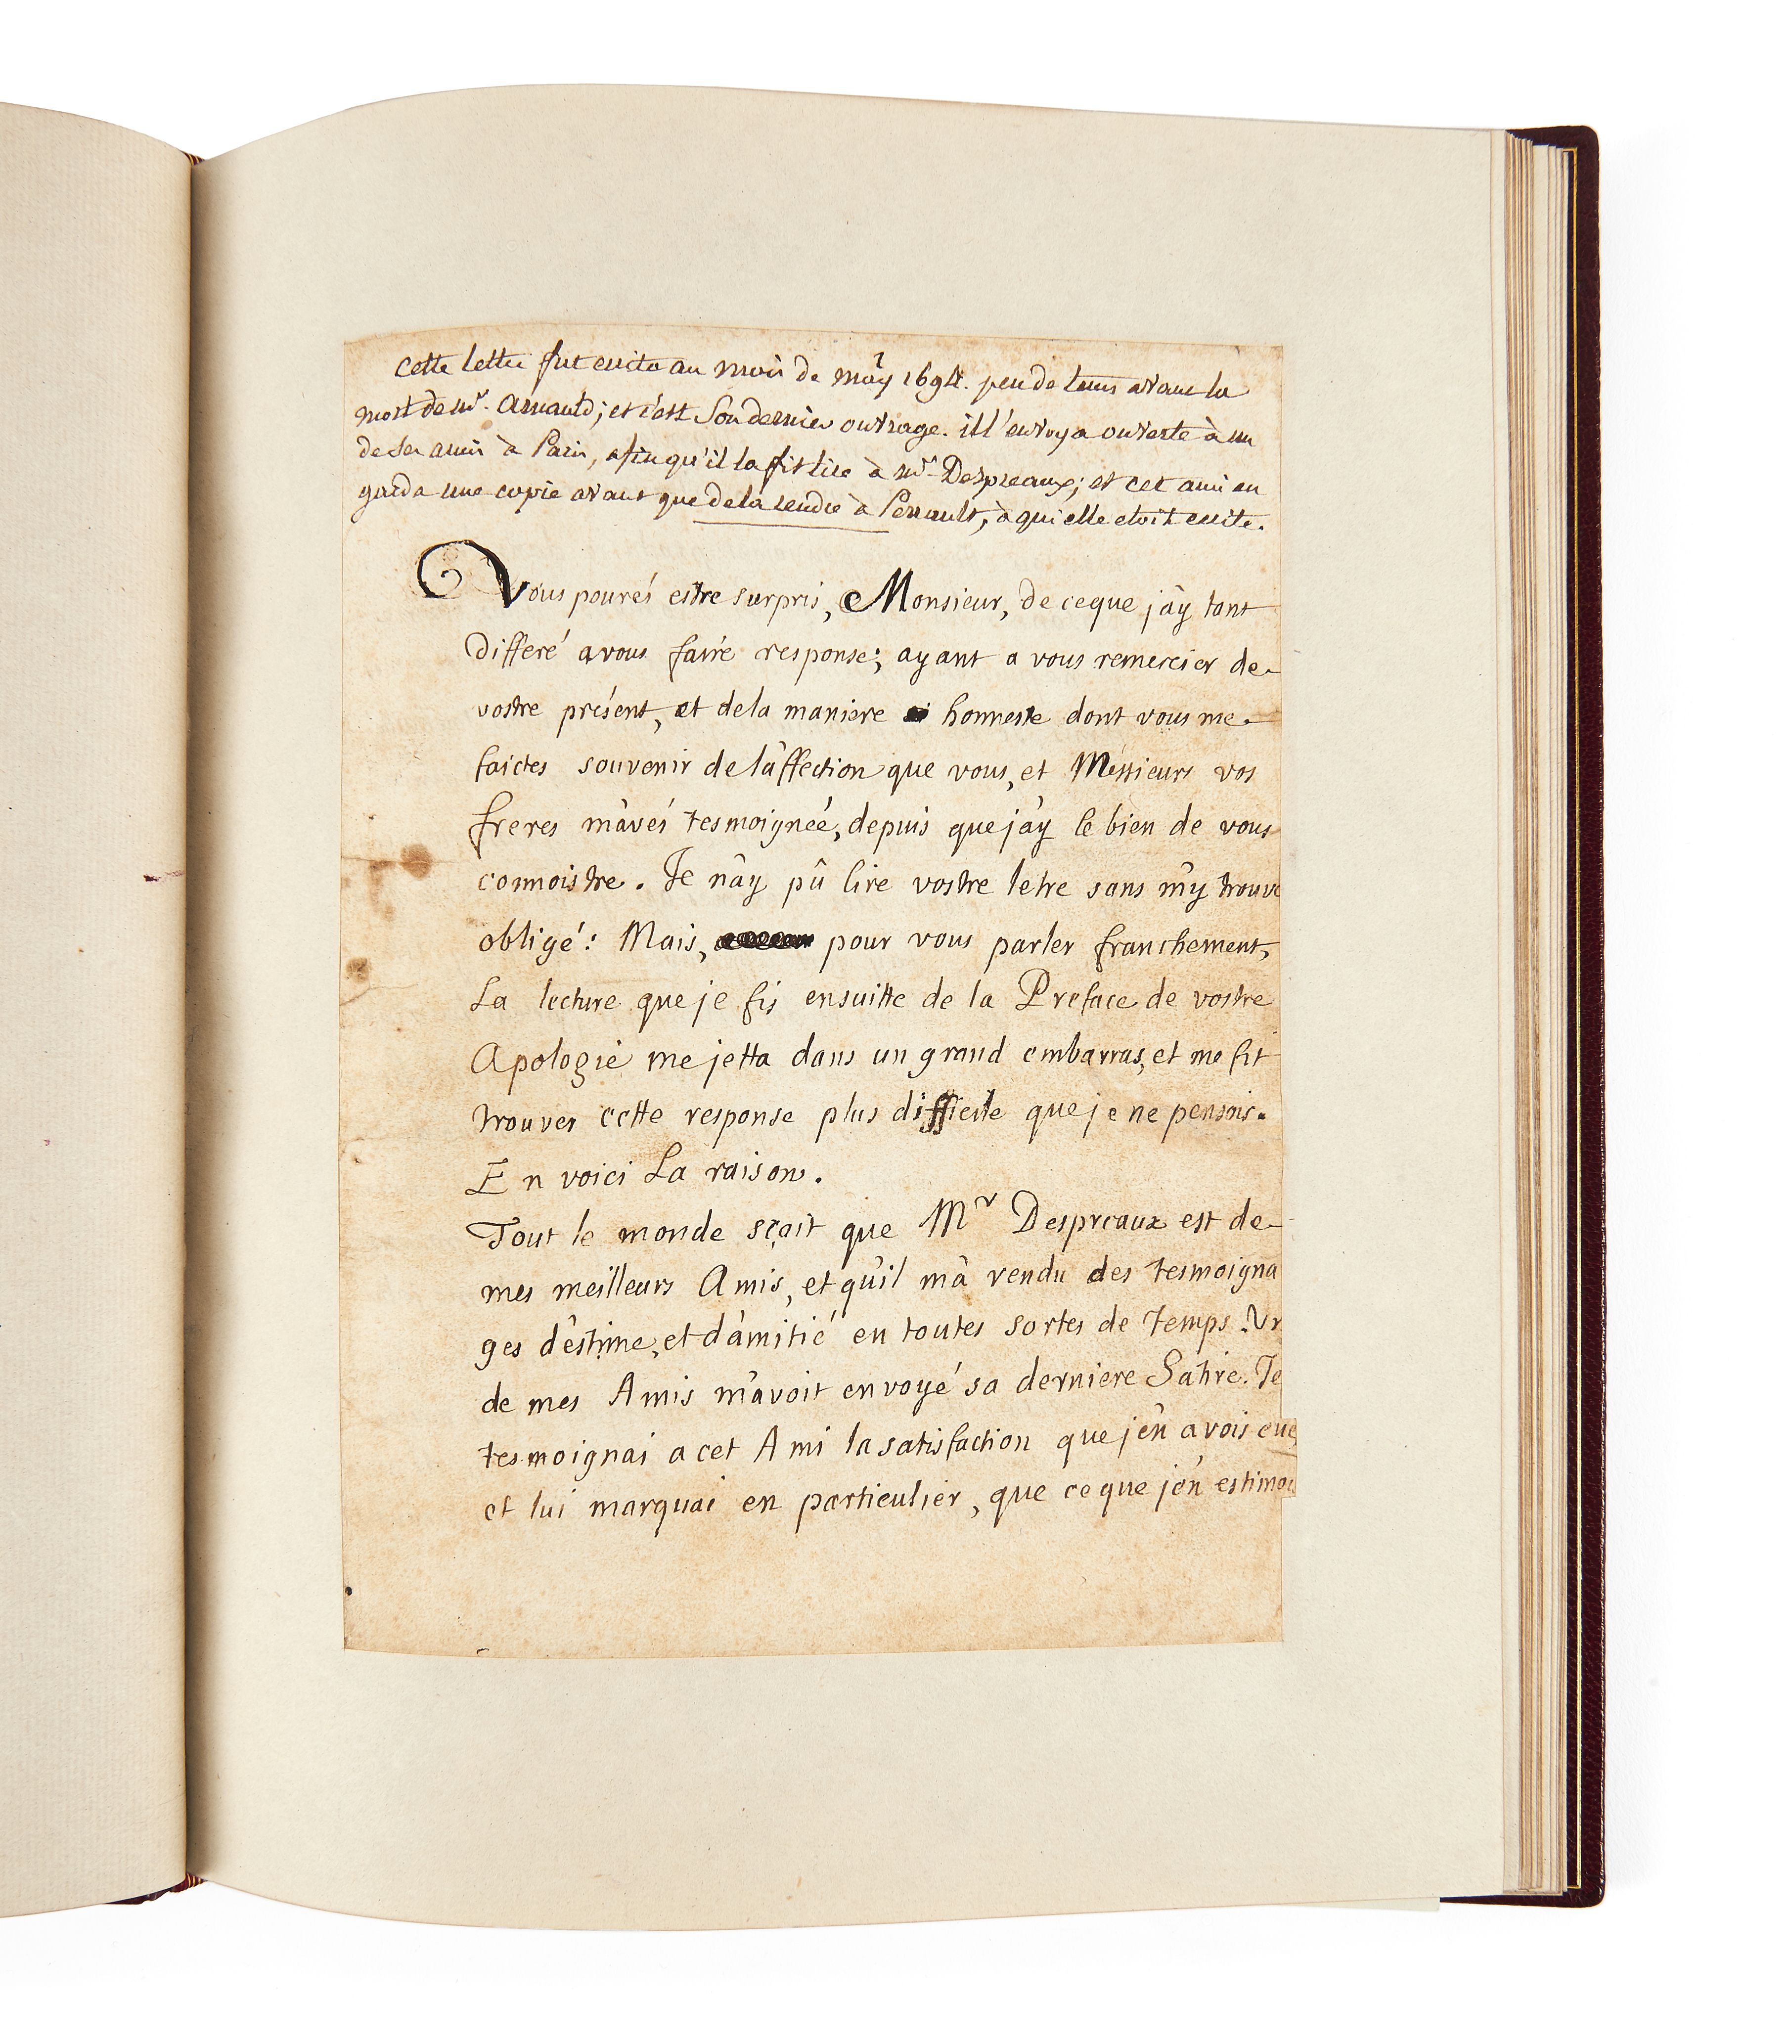 cette lettre fut ecrite au mois de may 1694. peu de tems avant la
mort de mr. Arnauld; et c'est son dernier ouvrage. il l'envoya ouverte à un
de ses amis à Paris, afin qu'il la fit lire à mr. Despreaux; et cet ami en
garda une copie avant que de la rendre à Perrault, à qui elle etoit ecrite.
Vous pourés estre surpris, Monsieur, de ce que j'ay tant
differé a vous faire response; ayant a vous remercier de
vostre présent, et de la maniere honneste dont vous me
faictes souvenir de l'affection que vous, et Messieurs vos
freres m'avés tesmoignée, depuis que j'ay le bien de vous
connoistre. Je n'ay pû lire vostre letre sans m'y trouve
obligé: Mais, pour vous parler franchement,
La lecture que je fis ensuitte de la Preface de vostre
Apologie me jetta dans un grand embarras, et me fit
trouver cette response plus difficile que je ne pensois.
En voici La raison.
Tout le monde sçait que Mr Despreaux est de
mes meilleurs Amis, et qu'il m'a rendu des tesmoigna
ges d'estime, et d'amitié en toutes sortes de temps. Un
de mes Amis m'avoit envoyé sa derniere Satire. Je
tesmoignai a cet Ami la satisfaction que j'en avois eue,
et lui marquai en particulier, que ce que j'en estimoi